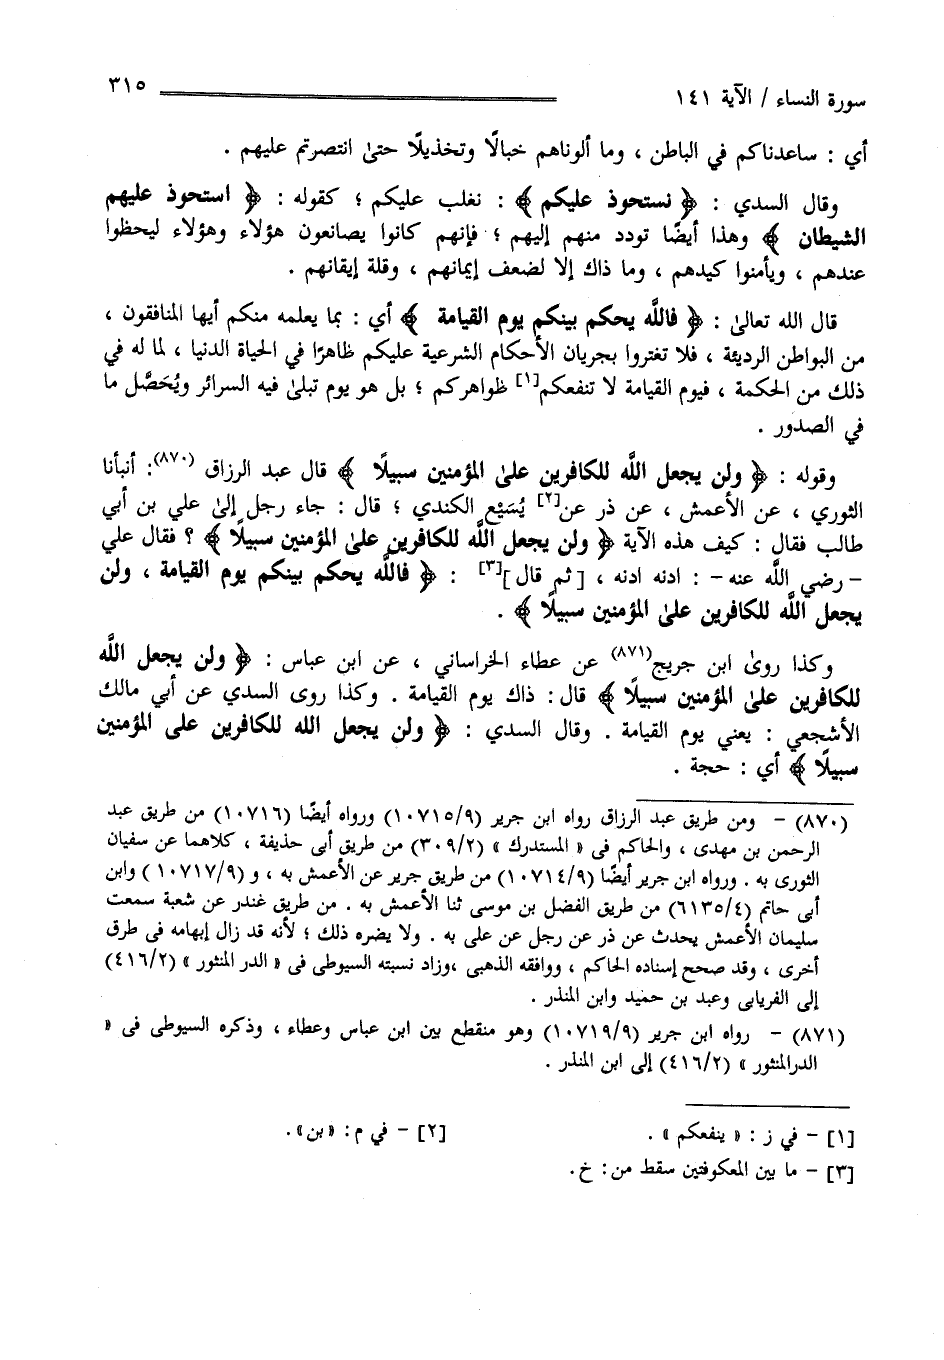 سورة النساء / الآية ١٤١
٣١٥
أي : ساعدناكم في الباطن ، وما ألوناهم خبالًا وتخذيلًا حتىٰ انتصرتم عليهم .
وقال السدي : ﴿ نستحوذ عليكم ﴾ : نغلب عليكم ؛ كقوله : ﴿ استحوذ عليهم
الشيطان ﴾ وهذا أيضًا تودد منهم إليهم ؛ فإنهم كانوا يصانعون هؤلاء وهؤلاء ليحظوا
عندهم ، ويأمنوا كيدهم ، وما ذاك إلا لضعف إيمانهم ، وقلة إيقانهم .
قال الله تعالىٰ : ﴿ فاللَّه يحكم بينكم يوم القيامة ﴾ أي : بما يعلمه منكم أيها المنافقون ،
من البواطن الرديئة ، فلا تغتروا بجريان الأحكام الشرعية عليكم ظاهرًا في الحياة الدنيا ، لما له في
ذلك من الحكمة ، فيوم القيامة لا تنفعكم[١] ظواهركم ؛ بل هو يوم تبلىٰ فيه السرائر ويُحَصَّل ما
في الصدور .
وقوله : ﴿ ولن يجعل اللَّه للكافرين علىٰ المؤمنين سبيلًا ﴾ قال عبد الرزاق (٨٧٠): أنبأنا
الثوري ، عن الأعمش ، عن ذر عن[٢] يُسَيْع الكندي ؛ قال : جاء رجل إلىٰ علي بن أبي
طالب فقال : كيف هذه الآية ﴿ ولن يجعل اللَّه للكافرين علىٰ المؤمنين سبيلًا ﴾ ؟ فقال علي
– رضي اللَّه عنه – : ادنه ادنه ، [ ثم قال ][٣] : ﴿ فاللَّه يحكم بينكم يوم القيامة ، ولن
يجعل اللَّه للكافرين علىٰ المؤمنين سبيلًا ﴾ .
وكذا روىٰ ابن جريج(٨٧١) عن عطاء الخراساني ، عن ابن عباس : ﴿ ولن يجعل اللَّه
للكافرين علىٰ المؤمنين سبيلًا ﴾ قال : ذاك يوم القيامة . وكذا روى السدي عن أبي مالك
الأشجعي : يعني يوم القيامة . وقال السدي : ﴿ ولن يجعل الله للكافرين على المؤمنين
سبيلًا ﴾ أي : حجة .
(٨٧٠) – ومن طريق عبد الرزاق رواه ابن جرير (١٠٧١٥/٩) ورواه أيضًا (١٠٧١٦) من طريق عبد
الرحمن بن مهدى ، والحاكم فى « المستدرك » (٣٠٩/٢) من طريق أبى حذيفة ، كلاهما عن سفيان
الثورى به . ورواه ابن جرير أيضًا (١٠٧١٤/٩) من طريق جرير عن الأعمش به ، و (١٠٧١٧/٩) وابن
أبى حاتم (٦١٣٥/٤) من طريق الفضل بن موسى ثنا الأعمش به . من طريق غندر عن شعبة سمعت
سليمان الأعمش يحدث عن ذر عن رجل عن على به . ولا يضره ذلك ؛ لأنه قد زال إبهامه فى طرق
أخرى ، وقد صحح إسناده الحاكم ، ووافقه الذهبي ،وزاد نسبته السيوطى فى « الدر المنثور » (٤١٦/٢)
إلى الفريابى وعبد بن حميد وابن المنذر .
(٨٧١) – رواه ابن جرير (١٠٧١٩/٩) وهو منقطع بين ابن عباس وعطاء ، وذكره السيوطى فى «
الدرالمنثور » (٤١٦/٢) إلى ابن المنذر .
[١] – في ز : « ينفعكم » .
[٢] – في م : «بن».
[٣] – ما بين المعكوفتين سقط من : خ .